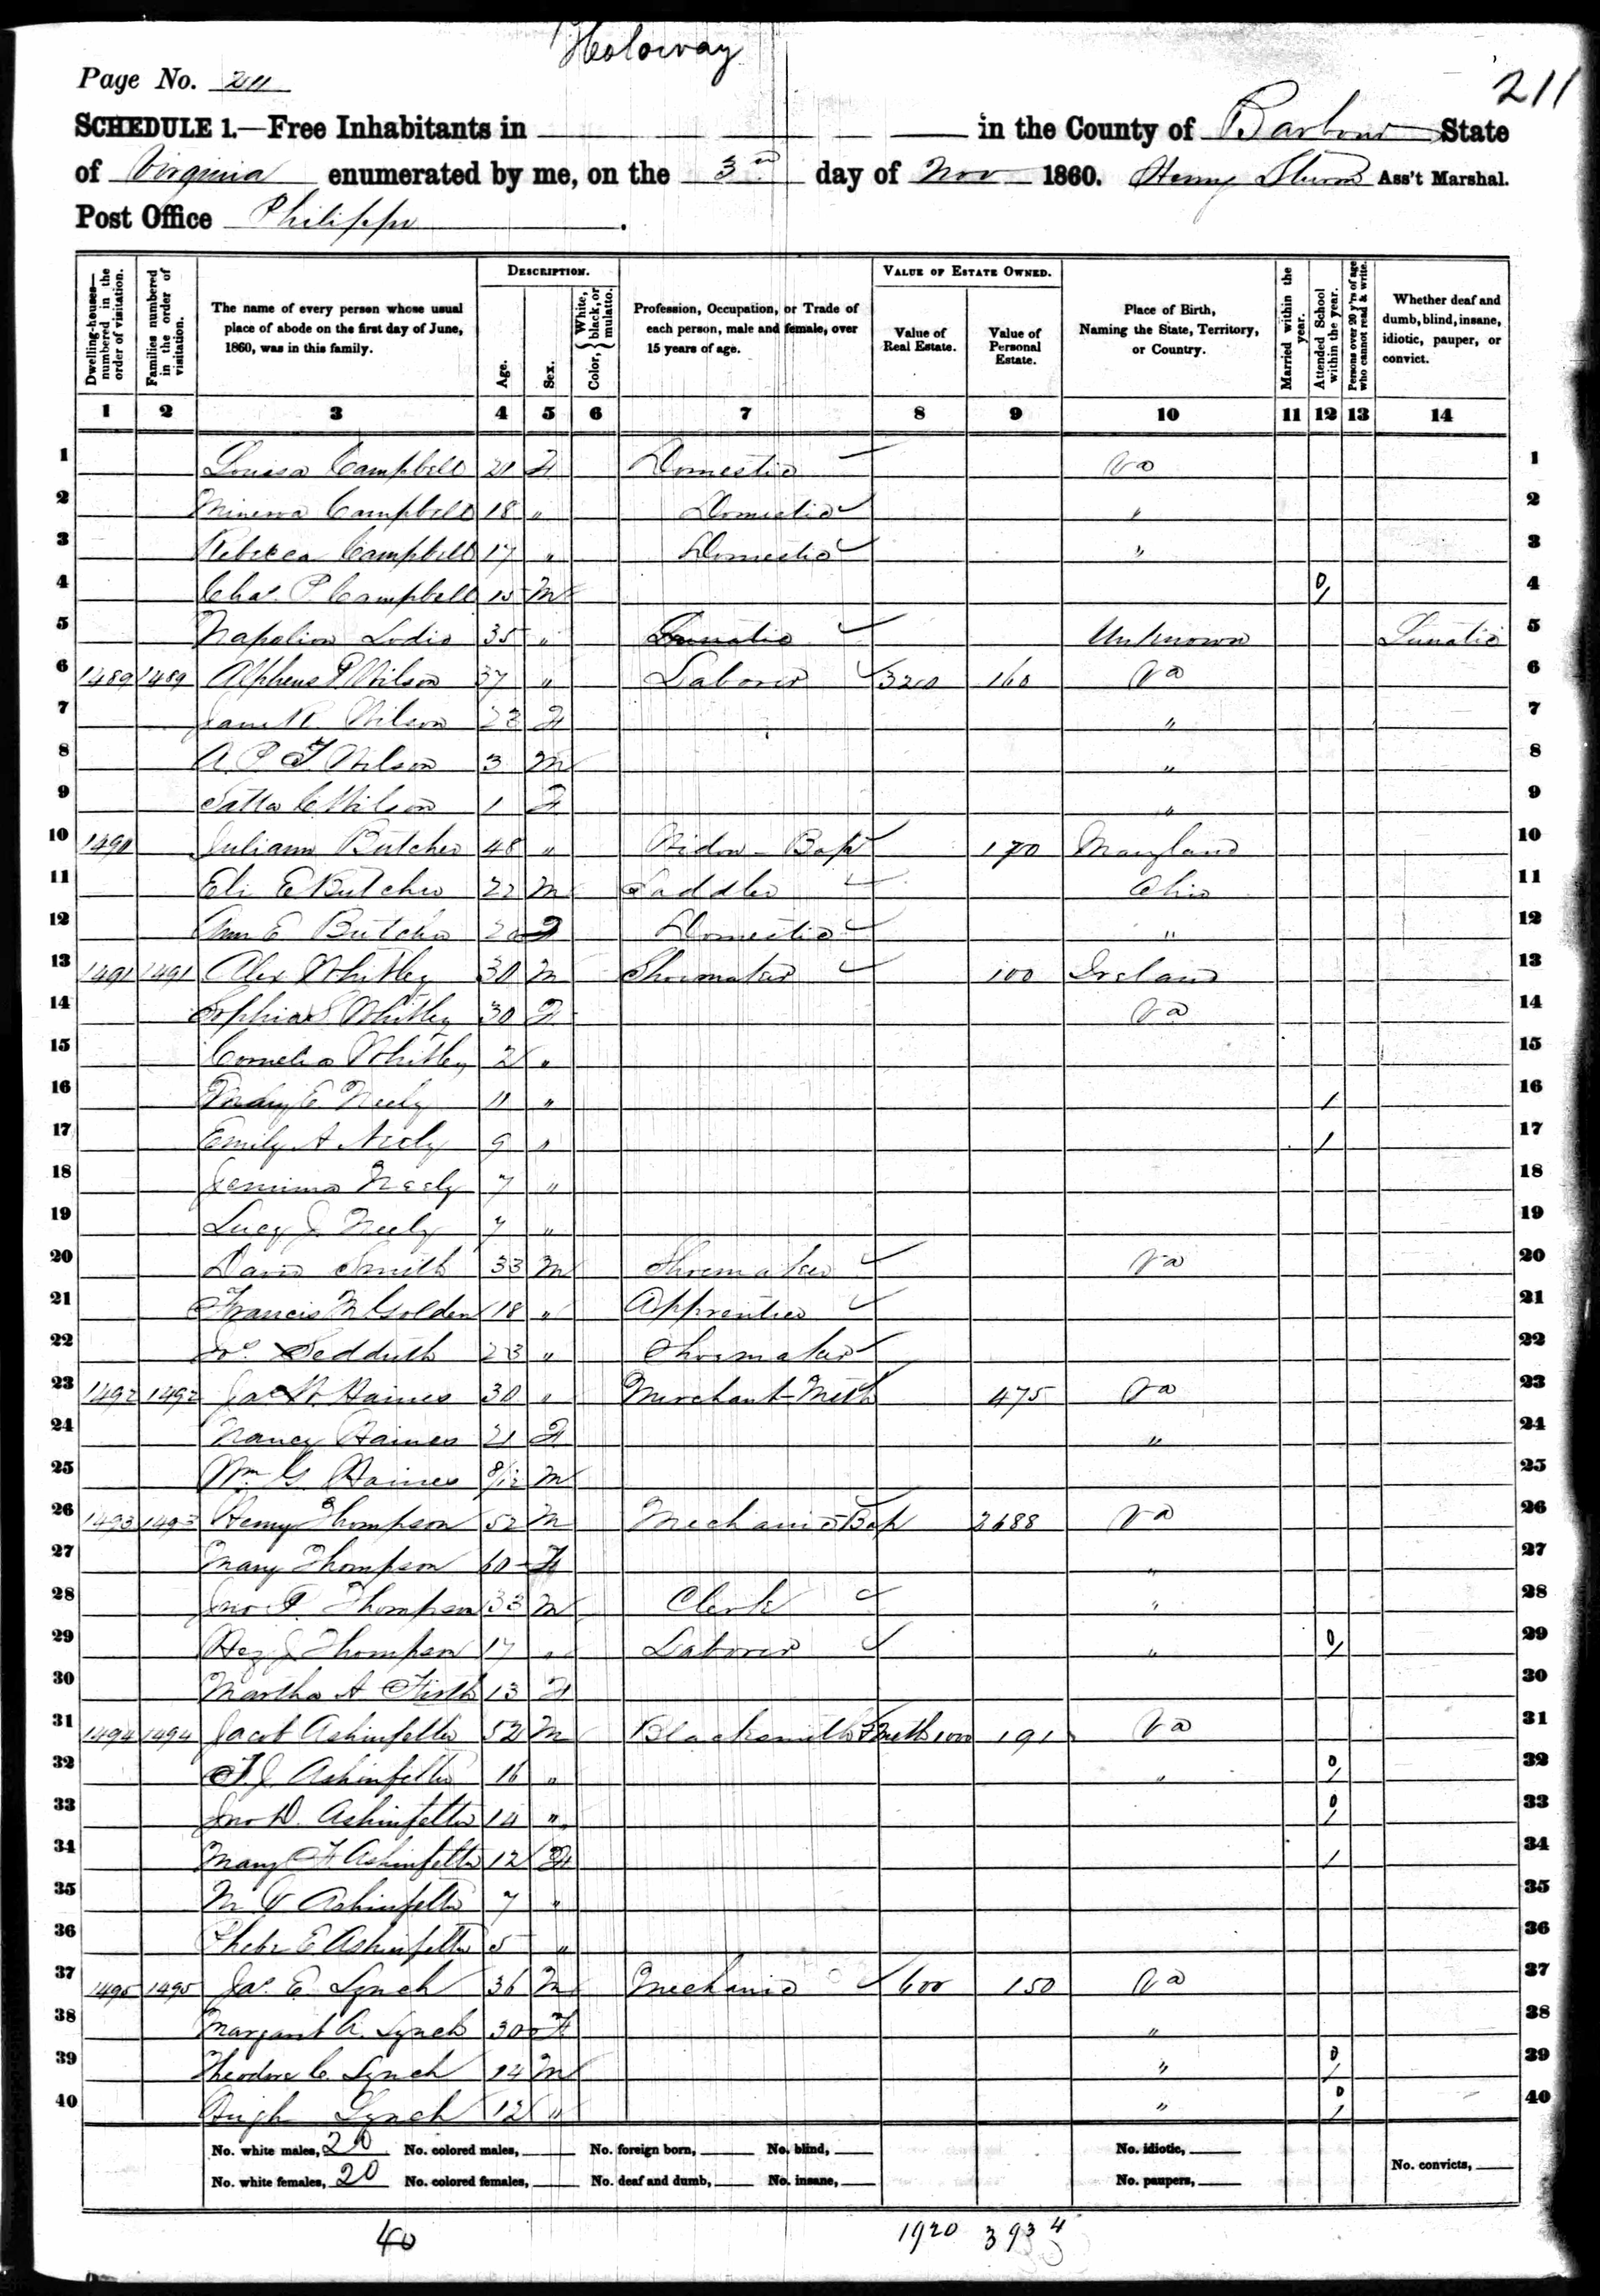 Holoway
Page No. 211
211
SCHEDULE 1.—Free Inhabitants in in the County of Barbour State
of Virginia enumerated by me, on the 3rd day of Nov 1860. Henry Sturm Ass't Marshal.
Post Office Philippi .
Dwelling-houses—numbered in the order of visitation.
Families numbered in the order of visitation.
The name of every person whose usual place of abode on the first day of June, 1860, was in this family.
DESCRIPTION.
Age.
Sex.
Color, { White, black, or mulatto.
Profession, Occupation, or Trade of each person, male and female, over 15 years of age.
VALUE OF ESTATE OWNED.
Value of Real Estate.
Value of Personal Estate.
Place of Birth, Naming the State, Territory, or Country.
Married within the year.
Attended School within the year.
Persons over 20 y'rs of age who cannot read & write.
Whether deaf and dumb, blind, insane, idiotic, pauper, or convict.
1 2 3 4 5 6 7 8 9 10 11 12 13 14
1 Louisa Campbell 21 F Domestic Va 1
2 Minerva Campbell 18 " Domestic " 2
3 Rebecca Campbell 17 " Domestic " 3
4 Chas. P. Campbell 15 M 4
5 Napoleon 35 " Lunatic Unknown Lunatic 5
6 1489 1489 Alpheus P. Wilson 37 " Laborer 320 160 Va 6
7 Jane R. Wilson 23 F " 7
8 A. P. F. Wilson 3 M " 8
9 C Wilson 1 F " 9
10 1490 Juliann Butcher 48 " Widow - Bap 170 Maryland 10
11 Eli E Butcher 22 M Saddler Ohio 11
12 Ann E Butcher 20 F Domestic " 12
13 1491 1491 Alex Whitley 30 M Shoemaker 100 Ireland 13
14 Sophia S Whitley 30 F Va 14
15 Cornelia Whitley 2 " 15
16 Mary E. Neely 11 " / 16
17 Emily A Neely 9 " / 17
18 Jemima Neely 7 " 18
19 Lucy J. Neely 7 " 19
20 David Smith 33 M Shoemaker Va 20
21 Francis M. Golden 18 " Apprentice 21
22 Jos. Sedduth 23 " Shoemaker 22
23 1492 1492 Jas. W. Haines 30 " Merchant - Meth 475 Va 23
24 Nancy Haines 21 F " 24
25 Wm. G. Haines 8/12 M 25
26 1493 1493 Henry Thompson 52 M Mechanic Bap 2688 Va 26
27 Mary Thompson 60 F " 27
28 Jno. P. Thompson 33 M Clerk " 28
29 Hez. J Thompson 17 " Laborer " 29
30 Martha A. Firth 13 F 30
31 1494 1494 Jacob Ashinfelter 52 M Blacksmith Meth 1000 191 Va 31
32 F. J. Ashinfelter 16 " " 32
33 Jno D. Ashinfelter 14 " 33
34 Mary F Ashinfelter 12 F / 34
35 M V Ashinfelter 7 " 35
36 Phebe E Ashinfelter 5 " 36
37 1495 1495 Jas. E. Lynch 36 M Mechanic 600 150 Va 37
38 Margaret A. Lynch 30 F " 38
39 Theodore C. Lynch 14 M " 39
40 Hugh Lynch 12 " " 40
No. white males, 20 No. colored males, No. foreign born, No. blind, No. idiotic,
No. white females, 20 No. colored females, No. deaf and dumb, No. insane, No. paupers, No. convicts,
40 1920 3934